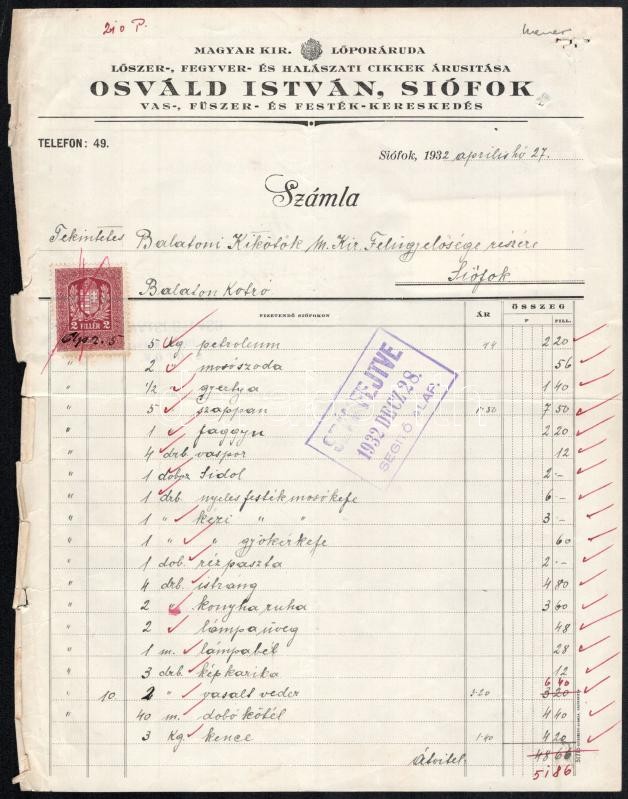 210 P.
MAGYAR KIR. LŐPORÁRUDA
LŐSZER-, FEGYVER- ÉS HALÁSZATI CIKKEK ÁRUSITÁSA
OSVÁLD ISTVÁN, SIÓFOK
VAS-, FŰSZER- ÉS FESTÉK-KERESKEDÉS
TELEFON: 49.
Siófok, 1932 április hó 27.
Számla
Tekintetes Balatoni Kikötők M. Kir. Felügyelősége részére
Siófok
Balaton Kotró
2 FILLÉR 2
ÖSSZEG
FIZETENDŐ SIÓFOKON ÁR P FILL.
5 kg petroleum 44 2 20
" 2 " mosószoda 56
" 1/2 " gyertya 1 40
" 5 " szappan 1·50 7 50
" 1 " faggyu 2 20
" 4 drb vaspor 12
" 1 doboz Sidol 2 ·-
" 1 drb. nyelesfestékmosókefe 6 -
" 1 " kézi " " 3 -
" 1 " " gyökérkefe 60
" 1 dob. rézpaszta 2 ·-
" 4 drb. istrang 4 80
" 2 " konyha ruha 3 60
" 2 " lámpaüveg 48
" 1 m. lámpabél 28
" 3 drb képkarika 12
6 40
" 10 2 " vasalt veder 3·20 3 20
" 40 m. dobó kötél 4 40
" 3 kg. kence 1·40 4 20
Átvitel: 48 66
51 86
SZÁMFEJTVE
1932 DECZ 28.
SEGITŐ ALAP.